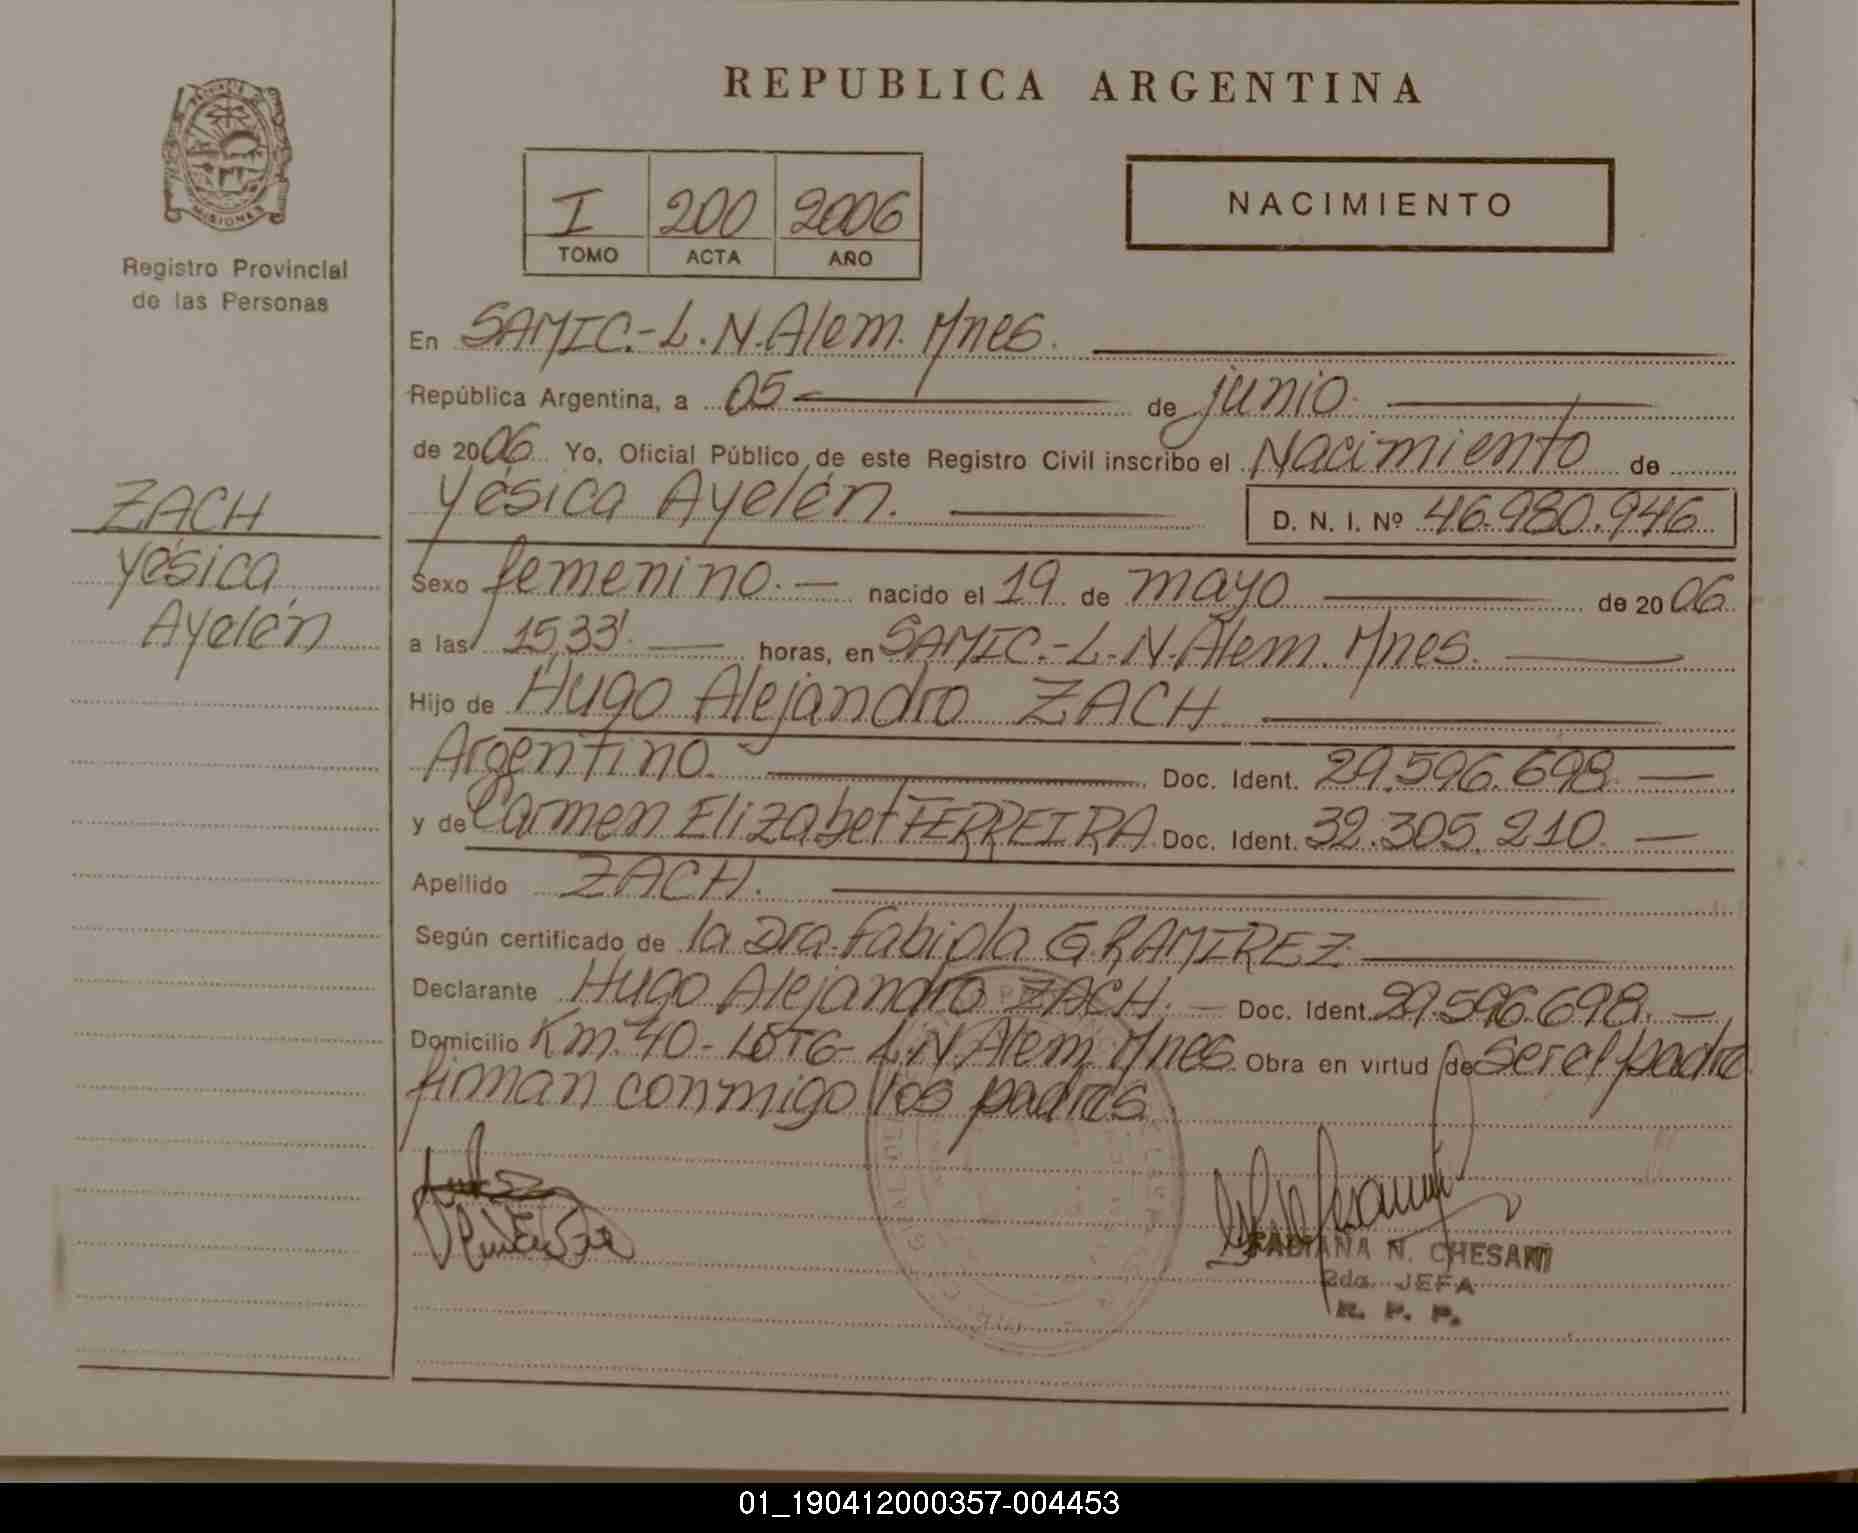 REPUBLICA ARGENTINA
PROVINCIA DE
MISIONES
Registro Provincial
de las Personas
I 200 2006
TOMO ACTA AÑO
NACIMIENTO
ZACH
Yésica
Ayelén
En SAMIC.-L.N.Alem. Mnes.
República Argentina, a 05 de junio.
de 2006 Yo, Oficial Público de este Registro Civil inscribo el Nacimiento de
Yésica Ayelén. D. N. I. Nº 46.980.946
Sexo femenino.— nacido el 19 de mayo de 2006
a las 15,33'. horas, en SAMIC.-L.N.Alem. Mnes.
Hijo de Hugo Alejandro ZACH
Argentino. Doc. Ident. 29.596.698.—
y de Carmen Elizabet FERREIRA Doc. Ident. 32.305.210.—
Apellido ZACH.
Según certificado de la Dra. Fabiola G. RAMIREZ
Declarante Hugo Alejandro ZACH.— Doc. Ident. 29.596.698.—
Domicilio Km. 40- L.N.Alem. Mnes. Obra en virtud de ser el padre
firman conmigo los padres.
FABIANA N. CHESANI
2da. JEFA
R. P. P.
01_190412000357-004453